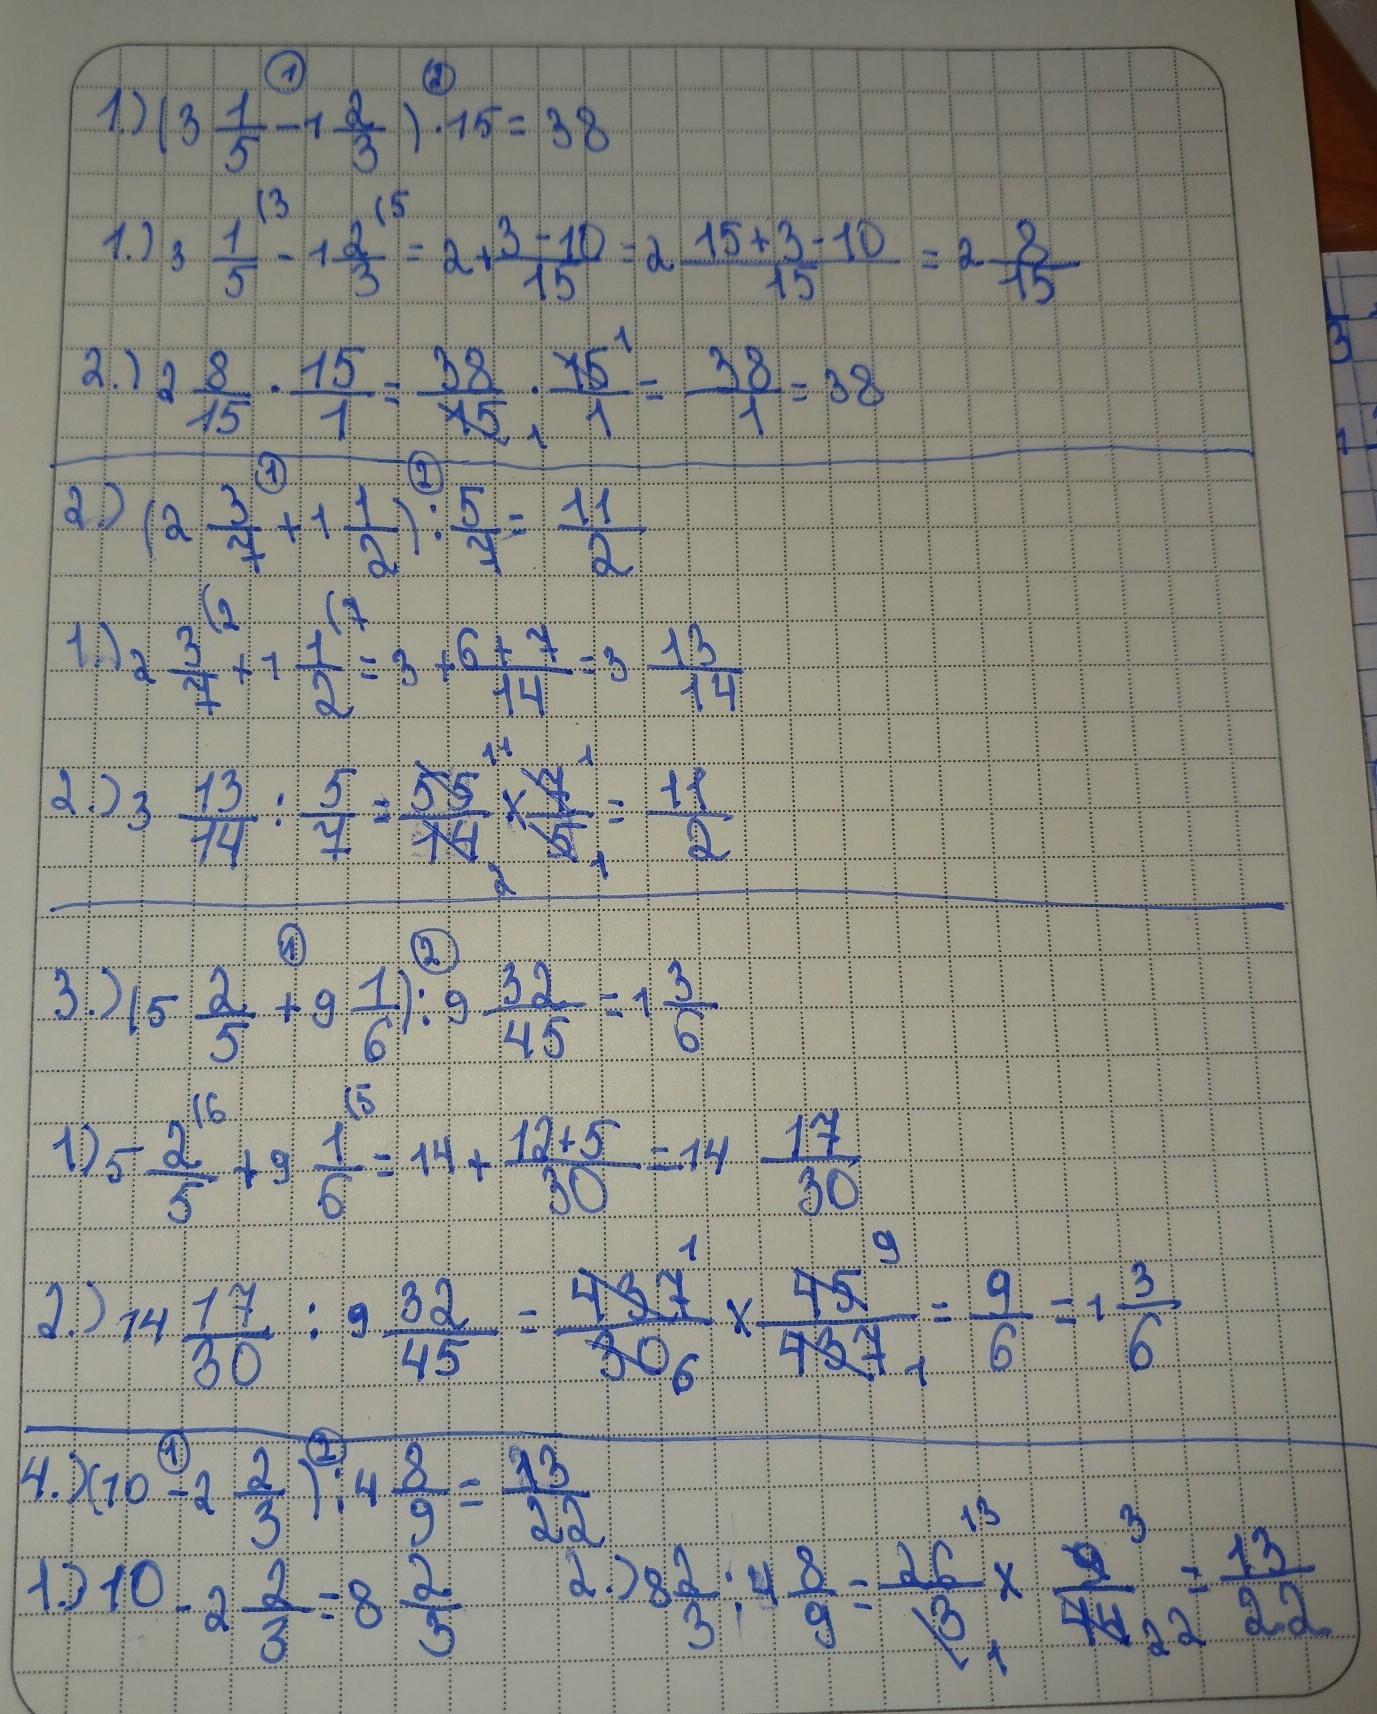 1.) (3 1/5 - 1 2/3) · 15 = 38 ① ②
1.) 3 1/5 (3 - 1 2/3 (5 = 2 + 3-10/15 = 2 15+3-10/15 = 2 8/15
2.) 2 8/15 · 15/1 = 38/15 1 · 15/1 1 = 38/1 = 38
2.) (2 3/7 + 1 1/2) : 5/7 = 11/2 ① ②
1.) 2 3/7 (2 + 1 1/2 (7 = 3 + 6+7/14 = 3 13/14
2.) 3 13/14 : 5/7 = 55/14 11 2 × 7/5 1 1 = 11/2
3.) (5 2/5 + 9 1/6) : 9 32/45 = 1 3/6 ① ②
1) 5 2/5 (6 + 9 1/6 (5 = 14 + 12+5/30 = 14 17/30
2.) 14 17/30 : 9 32/45 = 437/30 1 6 × 45/437 9 1 = 9/6 = 1 3/6
4.) (10 - 2 2/3) : 4 8/9 = 13/22 ① ②
1.) 10 - 2 2/3 = 8 2/3 2.) 8 2/3 : 4 8/9 = 26/3 13 1 × 9/44 3 22 = 13/22